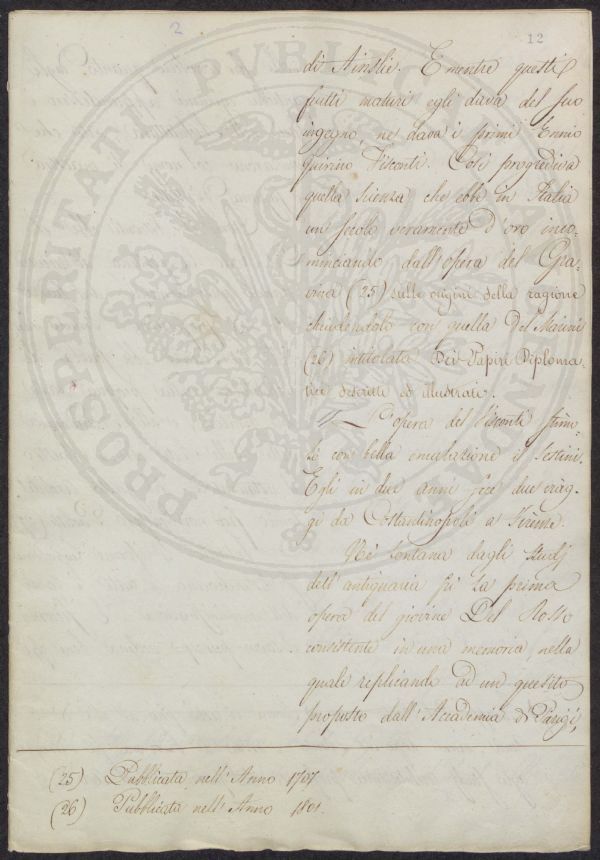 2
12
di Ainslie. E mentre questi
frutti maturi egli dava del suo
ingegno, ne dava i primi Ennio
Quirino Visconti. Così progrediva
quella scienza che ebbe in Italia
un secolo veramente d'oro inco-
minciando dall'opera del Gra-
vina (25) sulle origini della ragione
chiudendolo con quella Del Marini
(26) intitolata Dei Papiri Diploma-
tici descritti ed illustrati.
L'opera del Visconti stimo-
lò con bella emulazione il Sestini.
Egli in due anni fece due viag-
gi da Costantinopoli a Firenze.
Nè lontana dagli studj
dell'antiquaria fù la prima
opera del giovine Del Rosso
consistente in una memoria, nella
quale replicando ad un quesito
proposto dall'Accademia di Parigi,
(25) Pubblicata nell'Anno 1707
(26) Pubblicata nell'Anno 1801.
PROSPERITATI PUBLICAE AUGENDAE